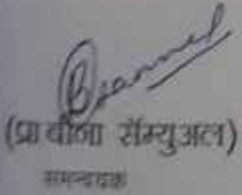 (प्रा बीना सॅम्युअल)
समन्वयक